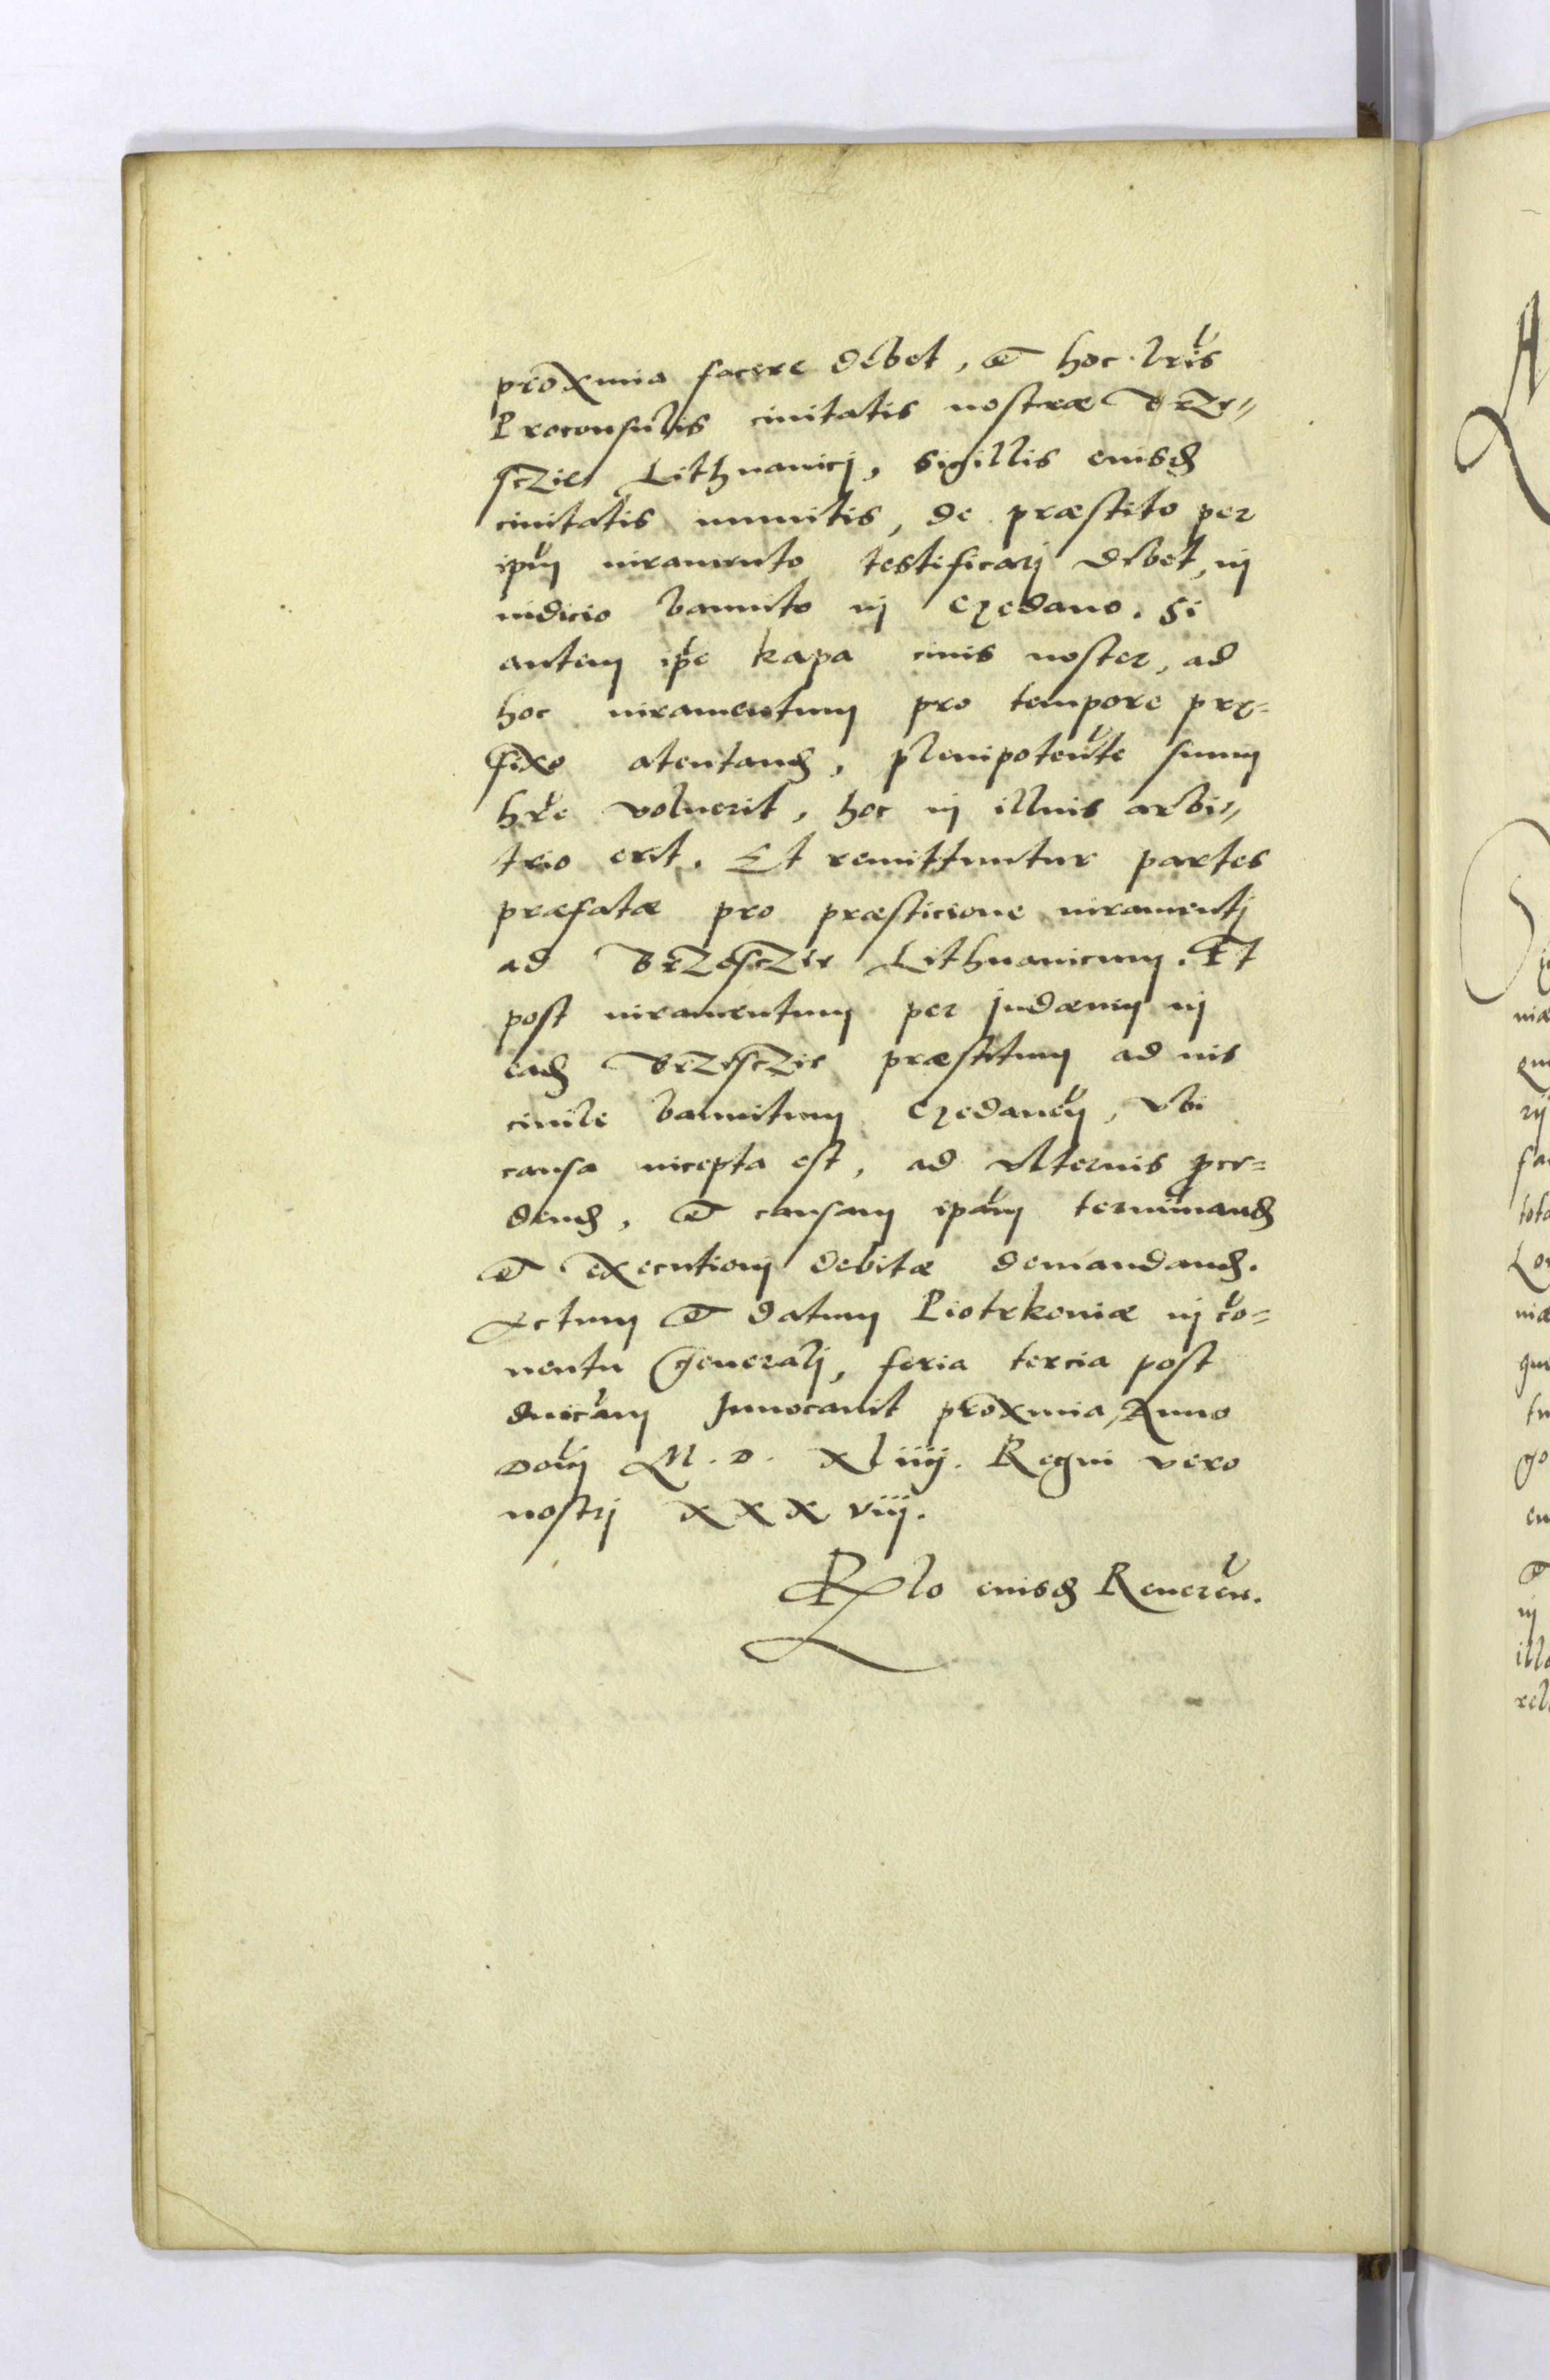 proxima facere debet, et hoc lr̃is
Proconsulis ciuitatis nostræ Brze=
sczie Lithuanicj, sigillis eiusd
ciuitatis munitis, de præstito per
ip̃m iuramento testificarj debet, in
iudicio bannito in Gedano. Si
autem ip̃e Kapa ciuis noster, ad
hoc iuramentum pro tempore præ=
fixo atentand, plenipotent̃e suum
hr̃e voluerit, hoc in illius arbi=
trio erit. Et remittuntur partes
præfatæ pro præsticione iuramentj
ad Brzesczie Lithuanicum. Et
post iuramentum per Judæum in
ead Brzesczie præstitum ad ius
ciuile bannitum Gedanen̄, vbi
causa incepta est, ad vlterius pce=
dend, et causam ip̃am terminand
et executionj debitæ demandand.
Actum et datum Piotrkouiæ in co=
uentu generalj, feria tercia post
dnicam Inuocauit proxima, Anno
Dom̃j M. D. XLiiij. Regni vero
nostrj XXXviij.
Rlo eiusd Reueren̄.
A